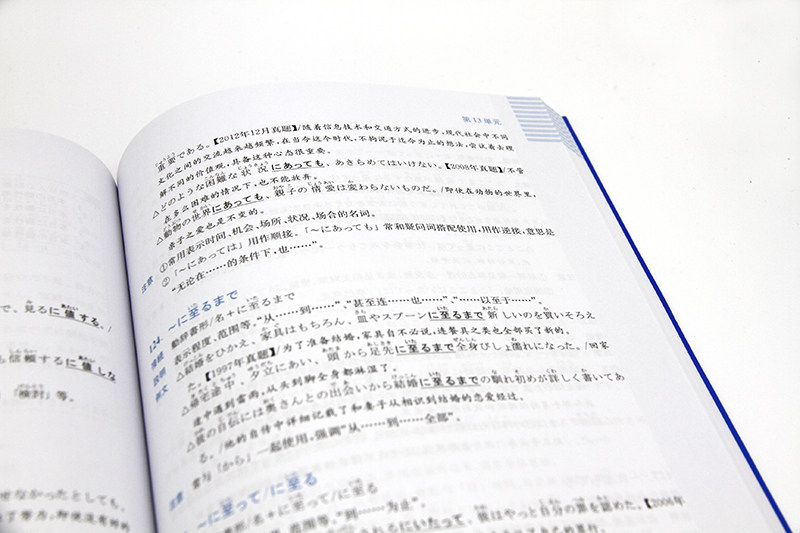 で、見るに値する。/
も信頼するに値しな
「検討」等。
度なかったとしても、
第13单元
重要である。【2012年12月真题】/随着信息技术和交通方式的进步，现代社会中不同
文化之间的交流越来越频繁，在当今这个时代，不拘泥于迄今为止的想法，尝试着去理
解不同的价值观，具备这种心态很重要。
△どのような困難な状況にあっても、あきらめてはいけない。【2008年真题】/不管
在多么困难的情况下，也不能放弃。
△動物の世界にあっても、親子の情愛は変わらないものだ。/即使在动物的世界里，
亲子之爱也是不变的。
注意 ①常用表示时间、机会、场所、状况、场合的名词。
②「～にあっては」用作顺接。「～にあっても」常和疑问词搭配使用，用作逆接，意思是
“无论在……的条件下，也……”。
124. ～に至るまで
接续 動辞書形/名＋に至るまで
说明 表示程度、范围等。“从……到……”、“甚至连……也……”、“……以至于……”。
例文 △結婚をひかえ、家具はもちろん、皿やスプーンに至るまで新しいのを買いそろえ
た。【1997年真题】/为了准备结婚，家具自不必说，连餐具之类也全部买了新的。
△帰宅途中、夕立にあい、頭から足先に至るまで全身びしょ濡れになった。/回家
途中遇到雷雨，从头到脚全身都淋湿了。
△彼の自伝には奥さんとの出会いから結婚に至るまでの馴れ初めが詳しく書いてあ
る。/他的自传中详细记载了和妻子从相识到结婚的恋爱经过。
注意 常与「から」一起使用，强调“从……到……全部”。
～に至って/に至る
動辞書形/名＋に至って/に至る
范围等。“到……为止”。
にいたって、彼はやっと自分の罪を認めた。【2006年